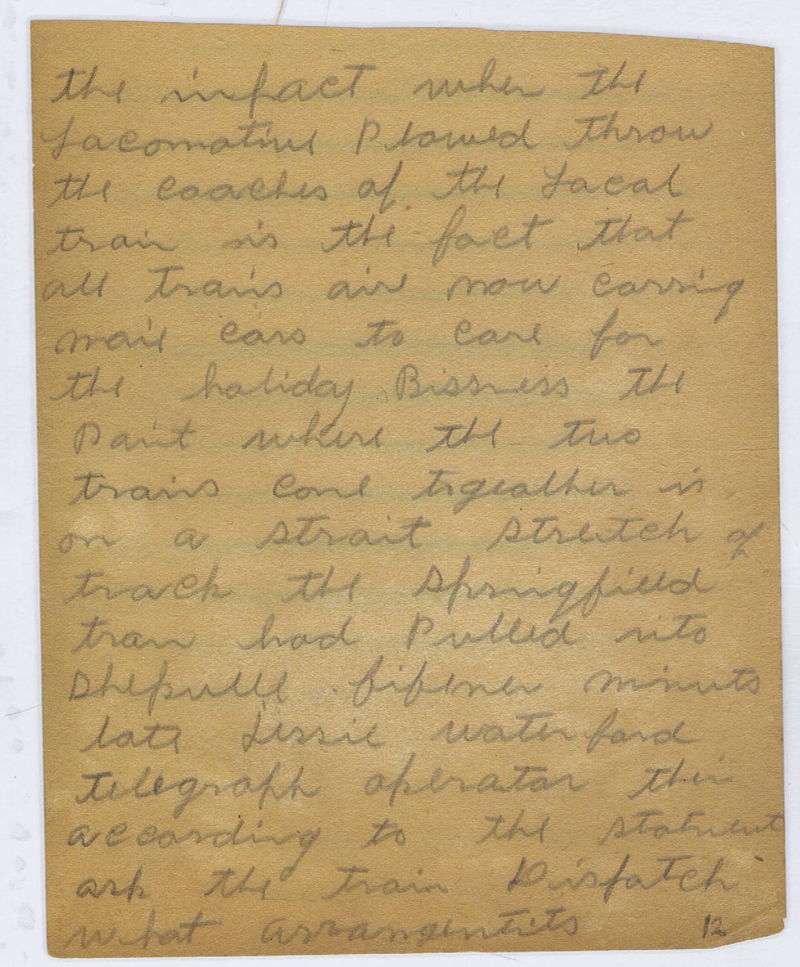 the infact when the
Locomotive Plowed throw
the coaches of the Local
train is the fact that
all trains air now carring
mail cars to care for
the holiday Bissness the
Paint where the two
trains come tigeather is
on a strait stretch of
track the Springfield
train had Pulled into
minuts
late Jessie waterford
telegraph operator their
according to the statment
ask the train Dispatch
what arrangentits
12